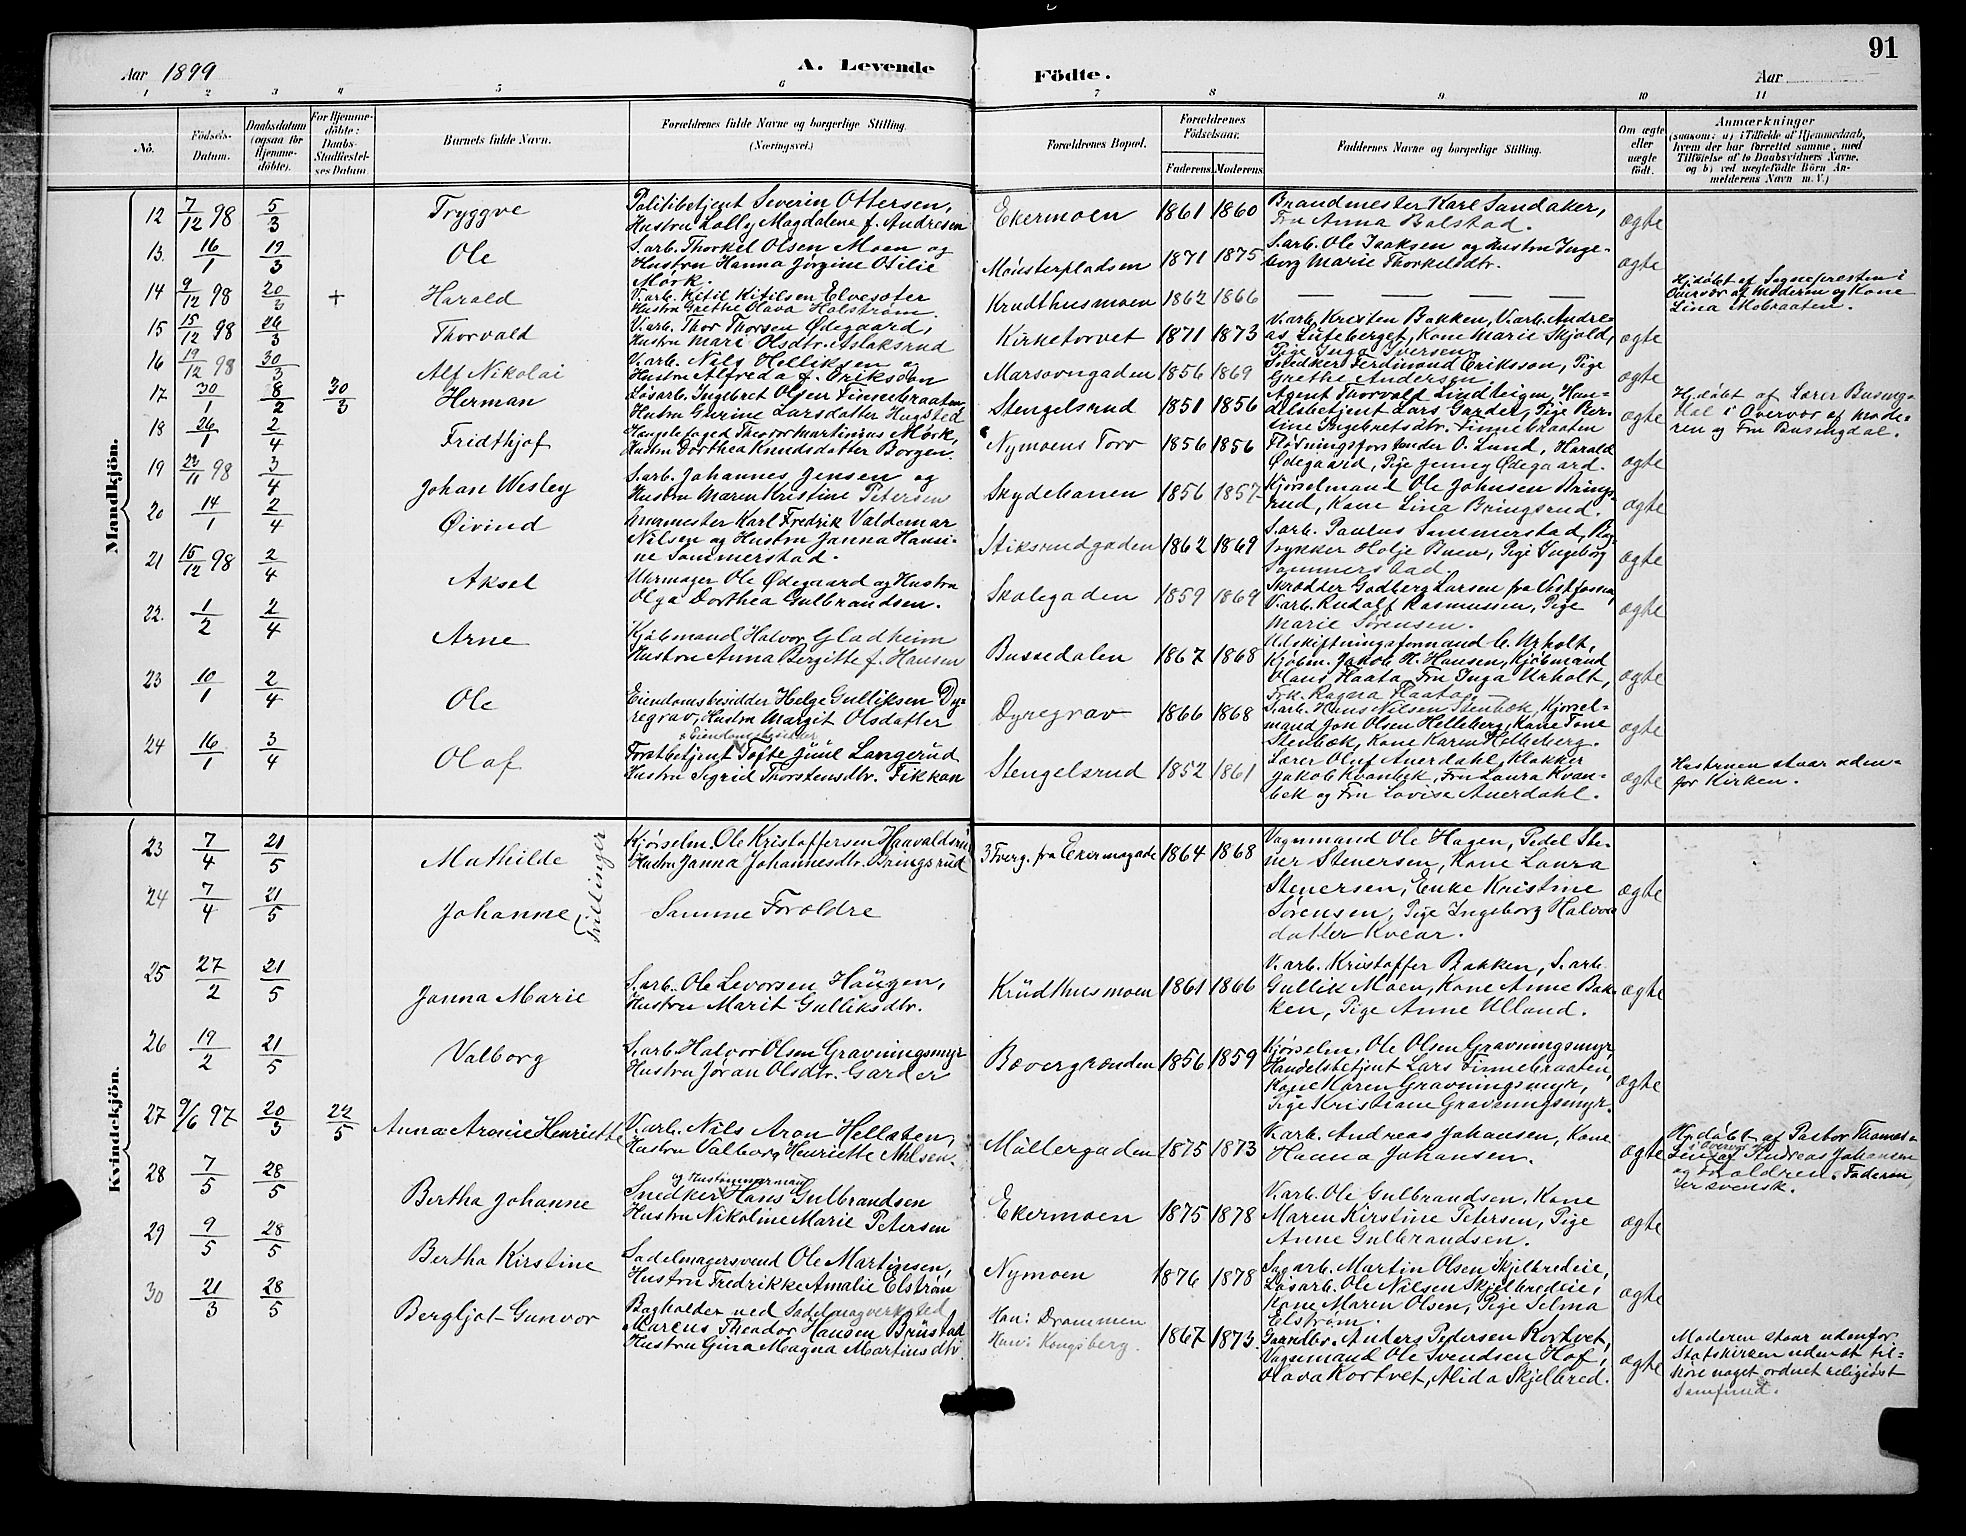 91
Aar 1899
A. Levende Födte.
Aar
1 2 3 4 5 6 7 8 9 10 11
No.
Födsels-Datum.
Daabsdatum (ogsaa for Hjemmedöbte).
For Hjemmedöbte: Daabs-Stadfæstelses Datum.
Barnets fulde Navn.
Forældrenes fulde Navne og borgerlige Stilling.
(Næringsvei.)
Forældrenes Bopæl.
Forældrenes Födselsaar.
Faderens. Moderens.
Faddernes Navne og borgerlige Stilling.
Om ægte eller uægte födt.
Anmærkninger
(saasom: a) i Tilfælde af Hjemmedaab, hvem der har forrettet samme, med Tilföielse af to Daabsvidners Navne, og b) ved uægtefödte Börn Anmelderens Navn m. V.)
Mandkjön.
12 7/12 98 5/3 Tryggve
Politibetjent Severin Ottersen,
Hustru Lally Magdalena f. Andresen
Ekermoen 1861 1860
Brandmester Karl Sandaker,
Fru Anna Bolstad.
ægte
13. 16/1 19/3 Ole
S.arb. Thorkel Olsen Moen og
Hustru Hanna Jørgine Otilie
Mörk.
Mönsterpladsen 1871 1875
S.arb. Ole Isaksen og Hustru Inge-
borg Marie Thorkelsdtr.
ægte
14 9/12 98 20/3 + Harald
V.arb. Kitil Kitilsen Elvesæter
Hustru Grethe Olava Halstrøm.
Krudthusmoen 1862 1866
— — — —
Hj.døbt af Sognepresten i
Overvær af Moderen og Kone
Lina Skobraaten.
15 15/12 98 26/3 Thorvald
V.arb. Thor Thorsen Ødegaard,
Hustru Mari Olsdtr. Aslaksrud
Kirketorvet 1871 1873
V.arb. Kristen Bakken, V.arb. Andre-
as Luteberget, Kone Marie Skjold,
Pige Inga Iversen
ægte
16 19/12 98 30/3 Alf Nikolai
V.arb. Nils Helliksen og
Hustru Alfreda f. Erikson
Marsovngaden 1856 1869
Snedker Ferdinand Eriksson, Pige
Grethe Andersen
ægte
17 30/1 8/2 30/3 Herman
Løsarb. Ingebret Olsen Finnebraaten
Hustru Gurine Larsdatter Hugsted
Stengelsrud 1851 1856
Agent Thorvald Lindteigen, Han-
delsbetjent Lars Garder, Pige Ber-
tine Ingebretsdtr. Finnebraaten
ægte
Hj.døbt af Lærer Buseng-
dal i Overvær af Mode-
ren og Fru Busengdal.
18 26/1 2/4 Fridthjof
Theodor Martinius Mörk,
Hustru Dorthea Knudsdatter Borgen.
Nymoens Torv 1856 1856
Fløtningsforstander O. Lund, Harald
Ødegaard, Pige Jenny Ødegaard.
ægte
19 22/11 98 3/4 Johan Wesley
S.arb. Johannes Jensen og
Hustru Maren Kristine Petersen
Skydebanen 1856 1857
Kjørselmand Ole Johnsen Brings-
rud, Kone Lina Bringsrud.
ægte
20 14/1 2/4 Øivind
Murmester Karl Fredrik Valdemar
Nilsen og Hustru Janna Hansi-
ne Sommerstad.
Stiksrudgaden 1862 1869
S.arb. Paulus Sommerstad, Bog-
trykker Helje Buen, Pige Ingeborg
Sommerstad.
ægte
21 15/12 98 2/4 Aksel
Uhrmager Ole Ødegaard og Hustru
Olga Dorthea Gulbrandsen.
Skolegaden 1859 1869
Skrædder Gudberg Larsen fra Vestfossen,
V.arb. Rudolf Rasmussen, Pige
Marie Sørensen.
ægte
22. 1/2 2/4 Arne
Kjøbmand Halvor Gladheim
Hustru Anna Bergitte f. Hansen
Bussedalen 1867 1868
Udskiftningsformand C. Urholt,
Kjøbm. Jakob H. Hansen, Kjøbmand
Olaus Flaata, Fru Inga Urholt,
Frk. Ragna Flaata
ægte
23 10/1 2/4 Ole
Eiendomsbesidder Helge Gulliksen Dy-
regrav, Hustru Margit Olsdatter
Dyregrav 1866 1868
S.arb. Hans Nilsen Stenbæk, Kjørsel-
mand Jon Olsen Helleberg, Kone Tone
Stenbæk, Kone Karen Helleberg.
ægte
24 16/1 3/4 Olaf
& Eiendomsbesidder
Forstbetjent Tofte Juul Langerud
Hustru Sigrid Thorstensdtr. Fikkan
Stengelsrud 1852 1861
Lærer Oluf Auerdahl, Klokker
Jakob Kvanbek, Fru Laura Kvan-
bek og Fru Lovise Auerdahl.
ægte
Hustruen staar uden-
for Kirken.
Kvindekjön.
23 7/4 21/5 Mathilde
Tvillinger
Kjørselm. Ole Kristoffersen Haavaldsrud
Hustru Janna Johannesdtr. Bringsrud
3 Tverg. fra Ekermogade 1864 1868
Vognmand Ole Hagen, Pedel Ste-
ner Stenersen, Kone Laura
Stenersen, Enke Kristine
Sørensen, Pige Ingeborg Halvors
datter Kvear.
ægte
24 7/4 21/5 Johanne
Samme Forældre
25 27/2 21/5 Janna Marie
S.arb. Ole Levorsen Haugen,
Hustru Marit Gulliksdtr.
Krudthusmoen 1861 1866
V.arb. Kristoffer Bakken, S.arb.
Gullik Moen, Kone Anne Bak-
ken, Pige Anne Ulland.
ægte
26 19/2 21/5 Valborg
S.arb. Halvor Olsen Gravningsmyr
Hustru Jøran Olsdtr. Garder
Bævergrænden 1856 1859
Kjørselm. Ole Olsen Gravningsmyr,
Handelsbetjent Lars Finnebraaten,
Kone Karen Gravningsmyr,
Pige Kristiane Gravningsmyr.
ægte
27 9/6 97 20/3 22/5 Anna Aronie Henriette
V.arb. Nils Aron Hellsten,
Hustru Valborg Henriette Nilsen.
Müllergaden 1875 1873
V.arb. Andreas Johansen, Kone
Hanna Johansen.
ægte
Hj.døbt af Pastor Thomes-
sen i Overvær af Andreas Johansen
og Forældrene. Faderen
er svensk.
28 7/5 28/5 Bertha Johanne
og Hustømmermand
Snedker Hans Gulbrandsen
Hustru Nikoline Marie Petersen
Ekermoen 1875 1878
V.arb. Ole Gulbrandsen, Kone
Maren Kirstine Petersen, Pige
Anne Gulbrandsen.
ægte
29 9/5 28/5 Bertha Kirstine
Sadelmagersvend Ole Martinsen,
Hustru Fredrikke Amalie Elstrøm
Nymoen 1876 1878
Sagarb. Martin Olsen Skjelbredeie,
Løsarb. Ole Nilsen Skjelbredeie,
Kone Maren Olsen, Pige Selma
Elstrøm.
ægte
30 21/3 28/5 Bergljot Gunvor
Bogholder ved Sadelmagverksted
Marcus Theodor Hansen Brustad
Hustru Gina Magna Martinsdtr.
Han: Drammen
Hun: Kongsberg.
1867 1873.
Gaardbr. Anders Pedersen Kortvet,
Vognmand Ole Svendsen Hof,
Olava Kortvet, Alida Skjelbred.
ægte
Moderen staar udenfor
Statskirken uden at til-
høre noget ordnet religiøst
Samfund.